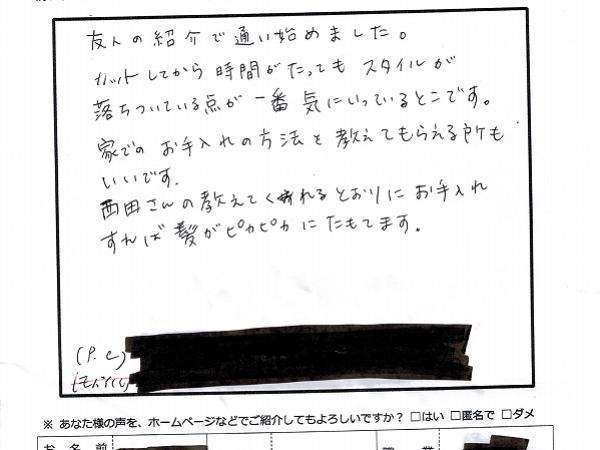 友人の紹介で通い始めました。
カットしてから時間がたってもスタイルが
落ちついている点が一番気にいっているとこです。
家でのお手入れの方法を教えてもらえる所も
いいです.
西田さんの教えてくれるとおりにお手入れ
すれば髪がピカピカにたもてます.
(P.C)
(モバイル)
※ あなた様の声を、ホームページなどでご紹介してもよろしいですか？ □はい □匿名で □ダメ
お 名 前